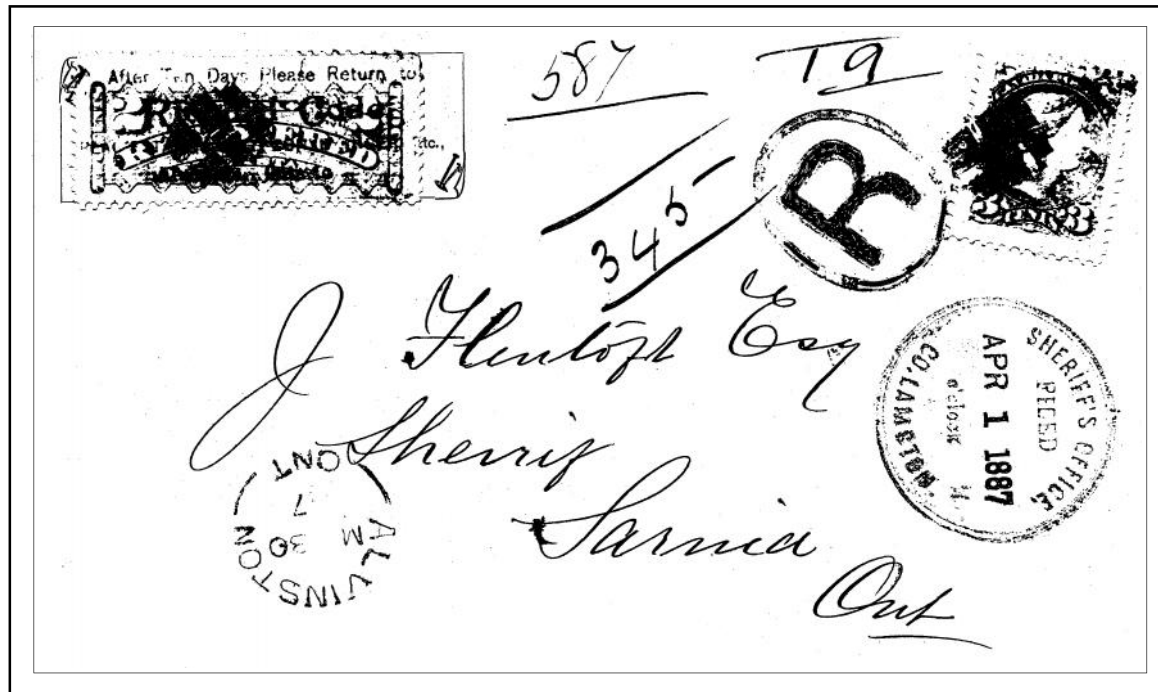 After Ten Days Please Return to
etc.,
587
345
R
3 CENTS 3
J. Flintoft Esq
Sherrif
Sarnia
Ont
SHERIFF'S OFFICE,
REC'D
APR 1 1887
o'clock M.
CO. LAMBTON.
ALVINSTON
M
30
7
ONT